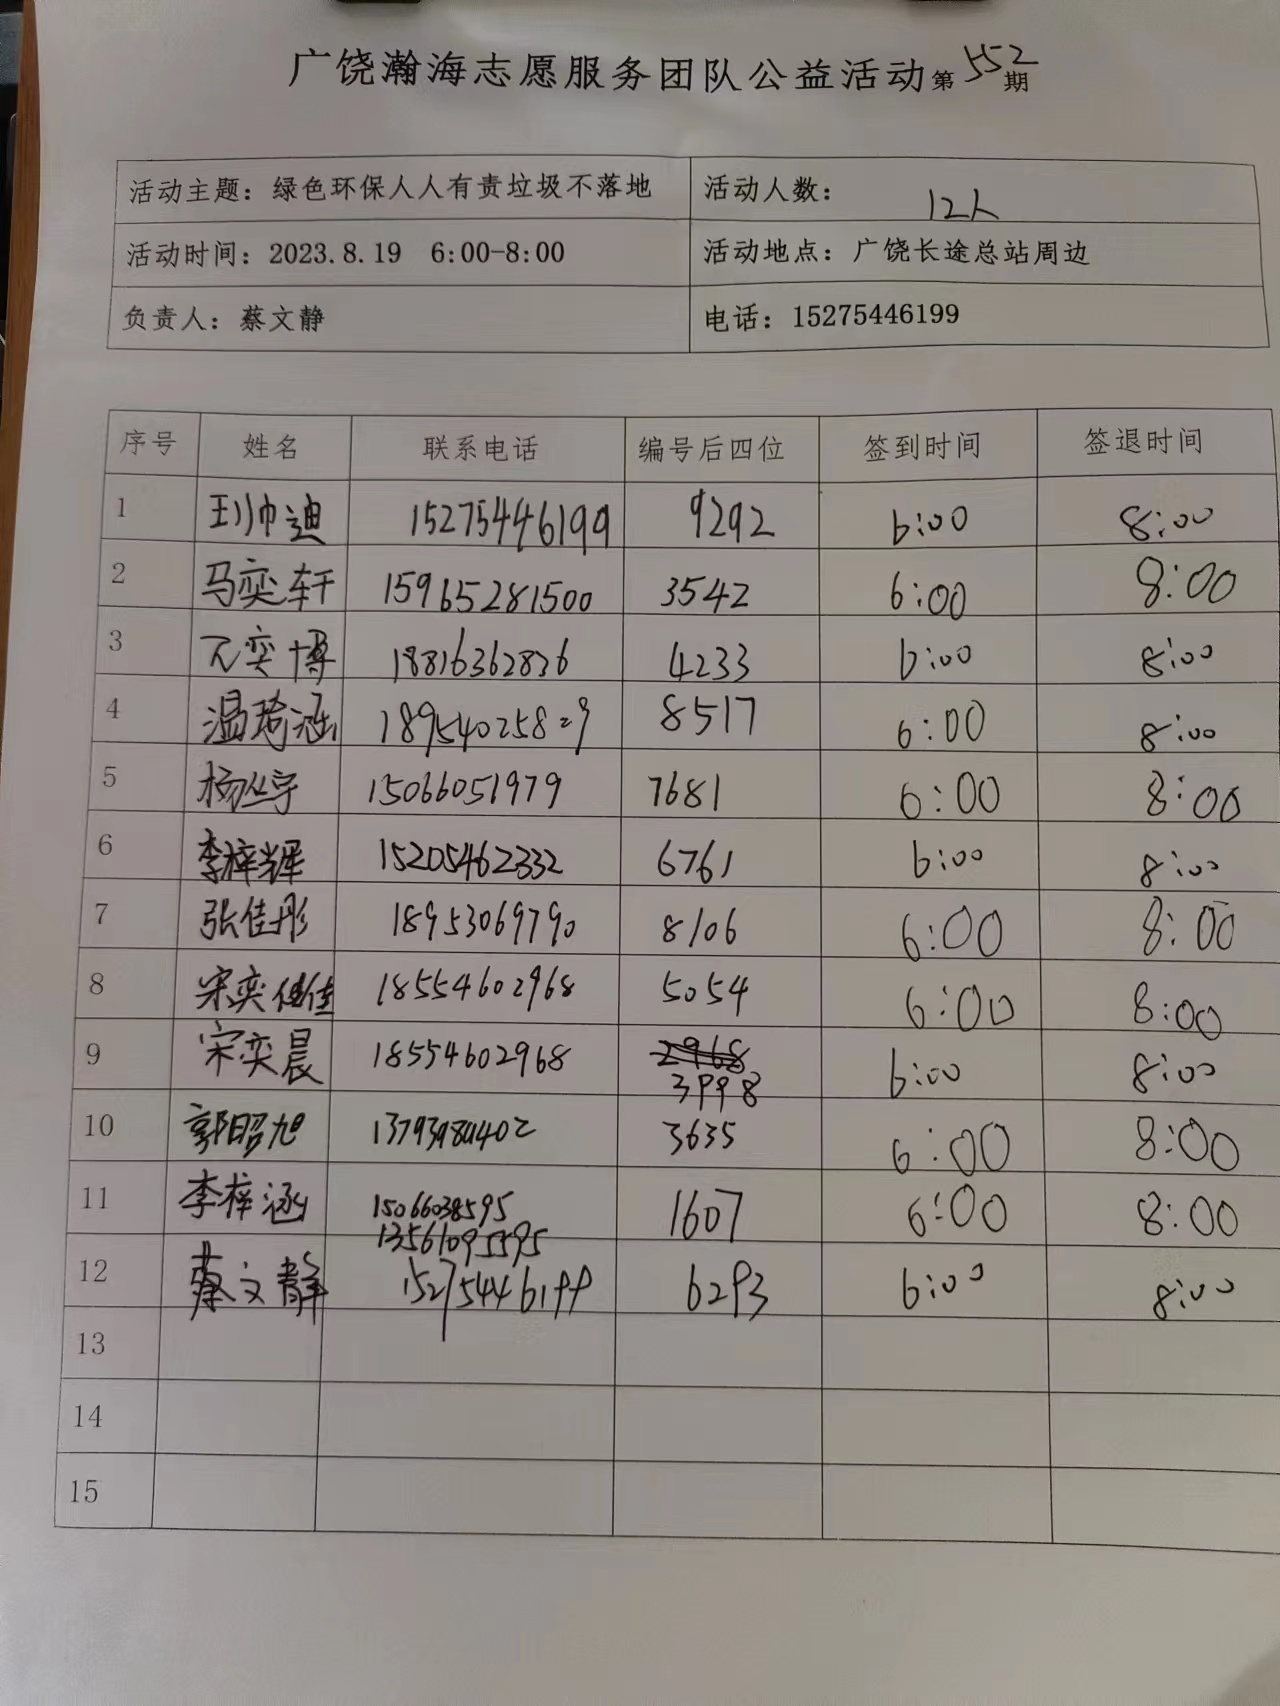 广饶瀚海志愿服务团队公益活动第552期
活动主题：绿色环保人人有责垃圾不落地 活动人数： 12人
活动时间：2023.8.19 6:00-8:00 活动地点：广饶长途总站周边
负责人：蔡文静 电话：15275446199
序号 姓名 联系电话 编号后四位 签到时间 签退时间
1 王帅迪 15275446199 9292 6:00 8:00
2 马奕轩 15965281500 3542 6:00 8:00
3 奕博 18816362836 4233 6:00 8:00
4 温琦涵 8517 6:00 8:00
5 杨丛宇 15066051979 7681 6:00 8:00
6 李梓辉 15205462332 6761 6:00 8:00
7 张佳彤 18953069790 8106 6:00 8:00
8 宋奕佳 18554602968 5054 6:00 8:00
9 宋奕晨 18554602968 2968 6:00 8:00
3998
10 郭昭旭 3635 6:00 8:00
11 李梓涵 15066038595 1607 6:00 8:00
13561095595
12 蔡文静 15275446199 6293 6:00 8:00
13
14
15